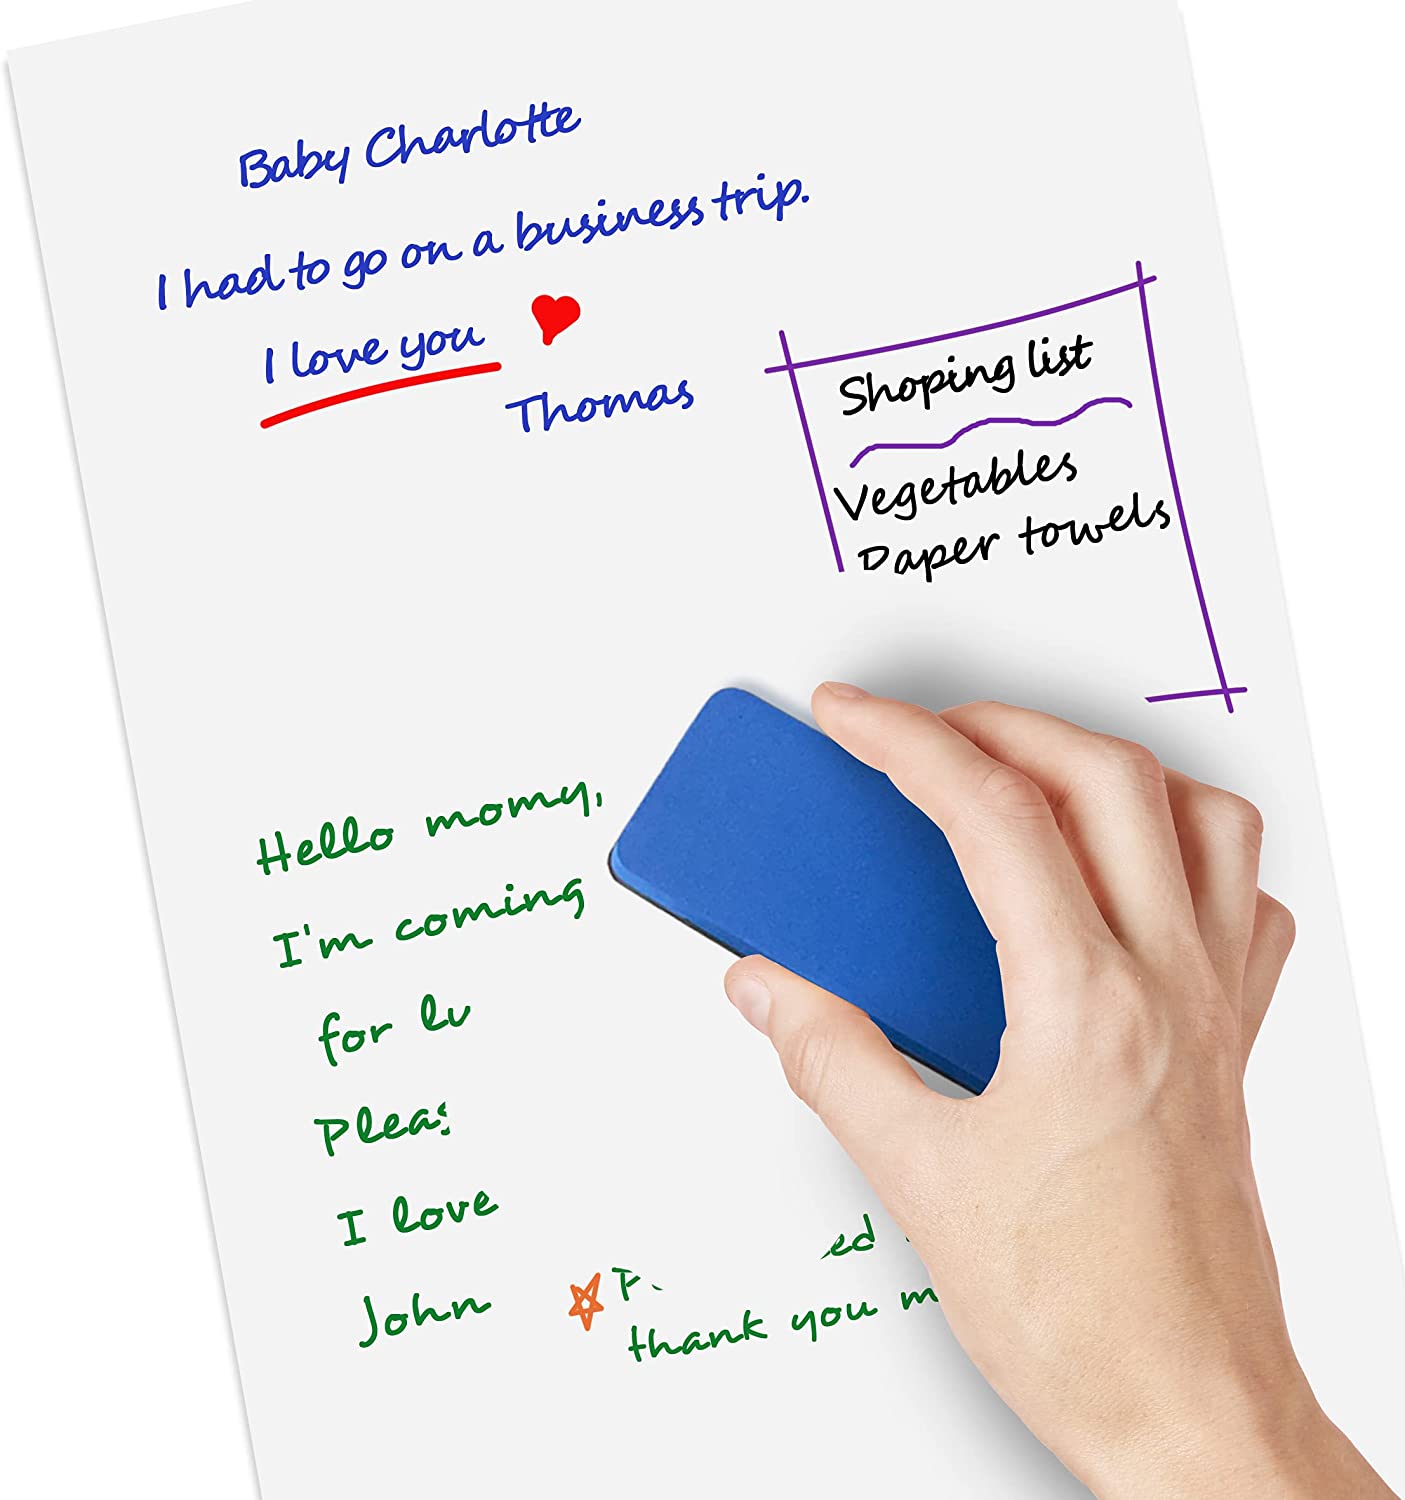 Baby Charlotte
I had to go on a business trip.
I love you
Thomas
Shoping list
Vegetables
Paper towels
Hello momy,
I'm coming
for
I love
John
thank you